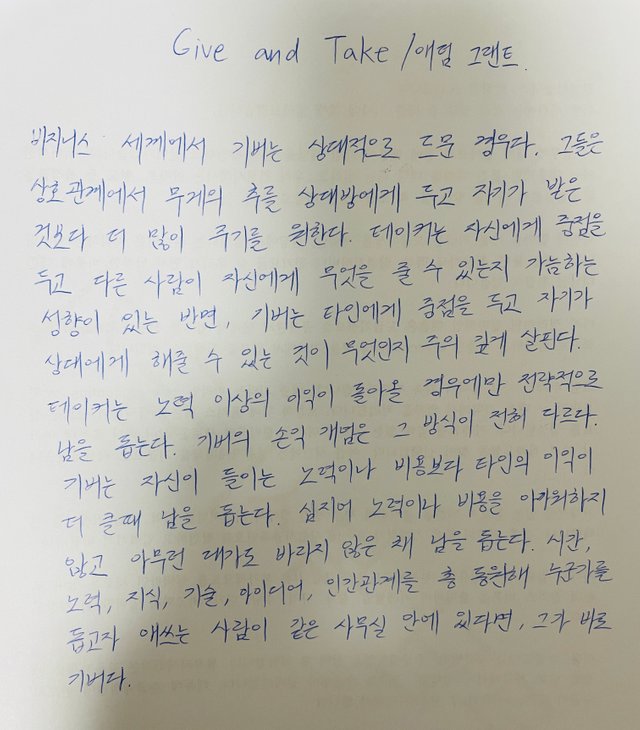 Give and Take / 애덤 그랜트.
비지니스 세계에서 기버는 상대적으로 드문 경우다. 그들은
상호관계에서 무게의 추를 상대방에게 두고 자기가 받은
것보다 더 많이 주기를 원한다. 테이커는 자신에게 중점을
두고 다른 사람이 자신에게 무엇을 줄 수 있는지 가늠하는
성향이 있는 반면, 기버는 타인에게 중점을 두고 자기가
상대에게 해줄 수 있는 것이 무엇인지 주의 깊게 살핀다.
테이커는 노력 이상의 이익이 돌아올 경우에만 전략적으로
남을 돕는다. 기버의 손익 개념은 그 방식이 전혀 다르다.
기버는 자신이 들이는 노력이나 비용보다 타인의 이익이
더 클때 남을 돕는다. 심지어 노력이나 비용을 아까워하지
않고 아무런 대가도 바라지 않은 채 남을 돕는다. 시간,
노력, 지식, 기술, 아이디어, 인간관계를 총 동원해 누군가를
돕고자 애쓰는 사람이 같은 사무실 안에 있다면, 그가 바로
기버다.